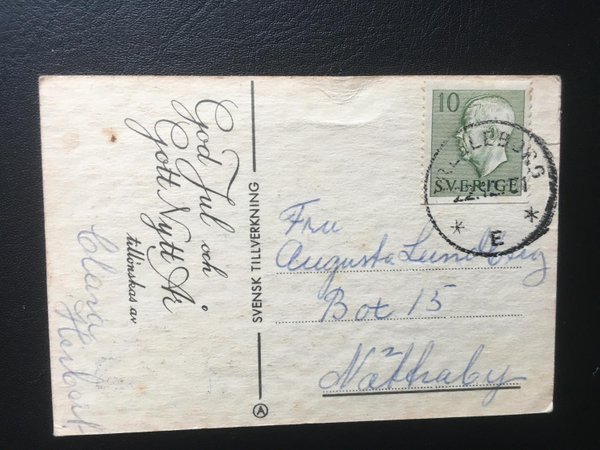 God Jul och
Gott Nytt År
tillönskas av
Clara
Herbert
SVENSK TILLVERKNING
A
10
SVERIGE
E
Fru
Augusta Lundberg
Box 15
Nättraby